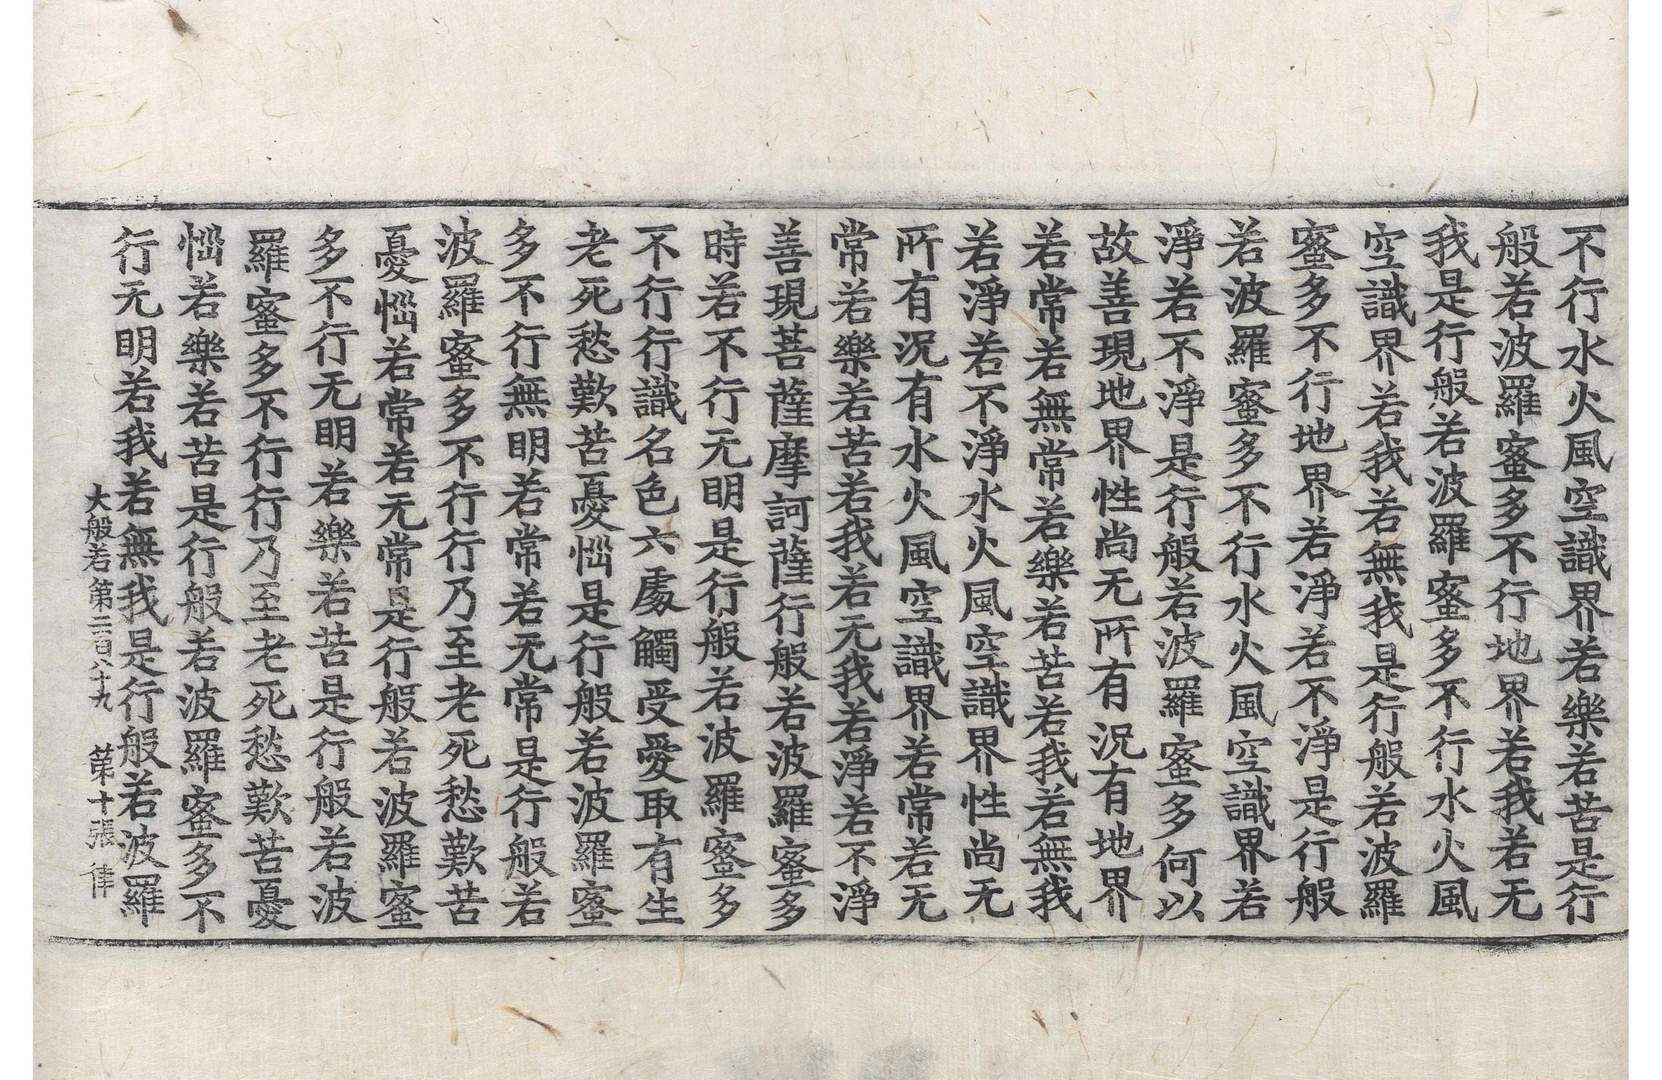 不行水火風空識界若樂若苦是行
般若波羅蜜多不行地界若我若无
我是行般若波羅蜜多不行水火風
空識界若我若無我是行般若波羅
蜜多不行地界若淨若不淨是行般
若波羅蜜多不行水火風空識界若
淨若不淨是行般若波羅蜜多何以
故善現地界性尚无所有況有地界
若常若無常若樂若苦若我若無我
若淨若不淨水火風空識界性尚无
所有況有水火風空識界若常若无
常若樂若苦若我若无我若淨若不淨
善現菩薩摩訶薩行般若波羅蜜多
時若不行无明是行般若波羅蜜多
不行行識名色六處觸受愛取有生
老死愁歎苦憂惱是行般若波羅蜜
多不行無明若常若无常是行般若
波羅蜜多不行行乃至老死愁歎苦
憂惱若常若无常是行般若波羅蜜
多不行无明若樂若苦是行般若波
羅蜜多不行行乃至老死愁歎苦憂
惱若樂若苦是行般若波羅蜜多不
行无明若我若無我是行般若波羅
大般若第二百八十九 第十張 律